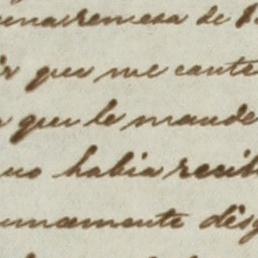 una remesa de
ir que me cante
que le mande
no habia recib
umamente disg